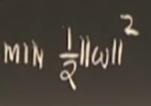 MIN 1/2 ||ω||²